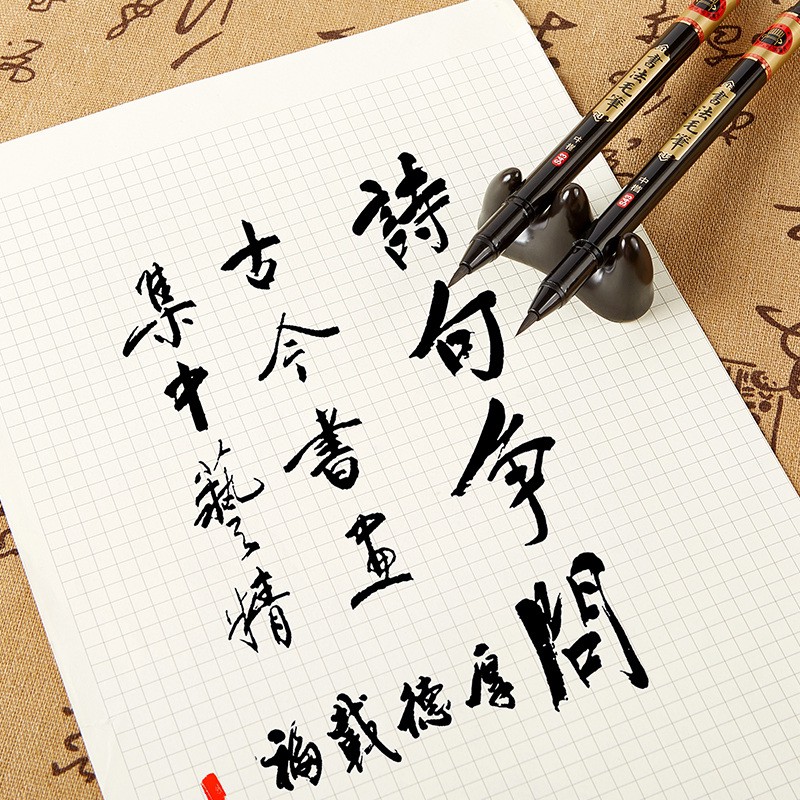 詩句争問
古今書畫
集中藝精
厚德戴福
書法毛筆
中楷
S43
書法毛筆
中楷
S43